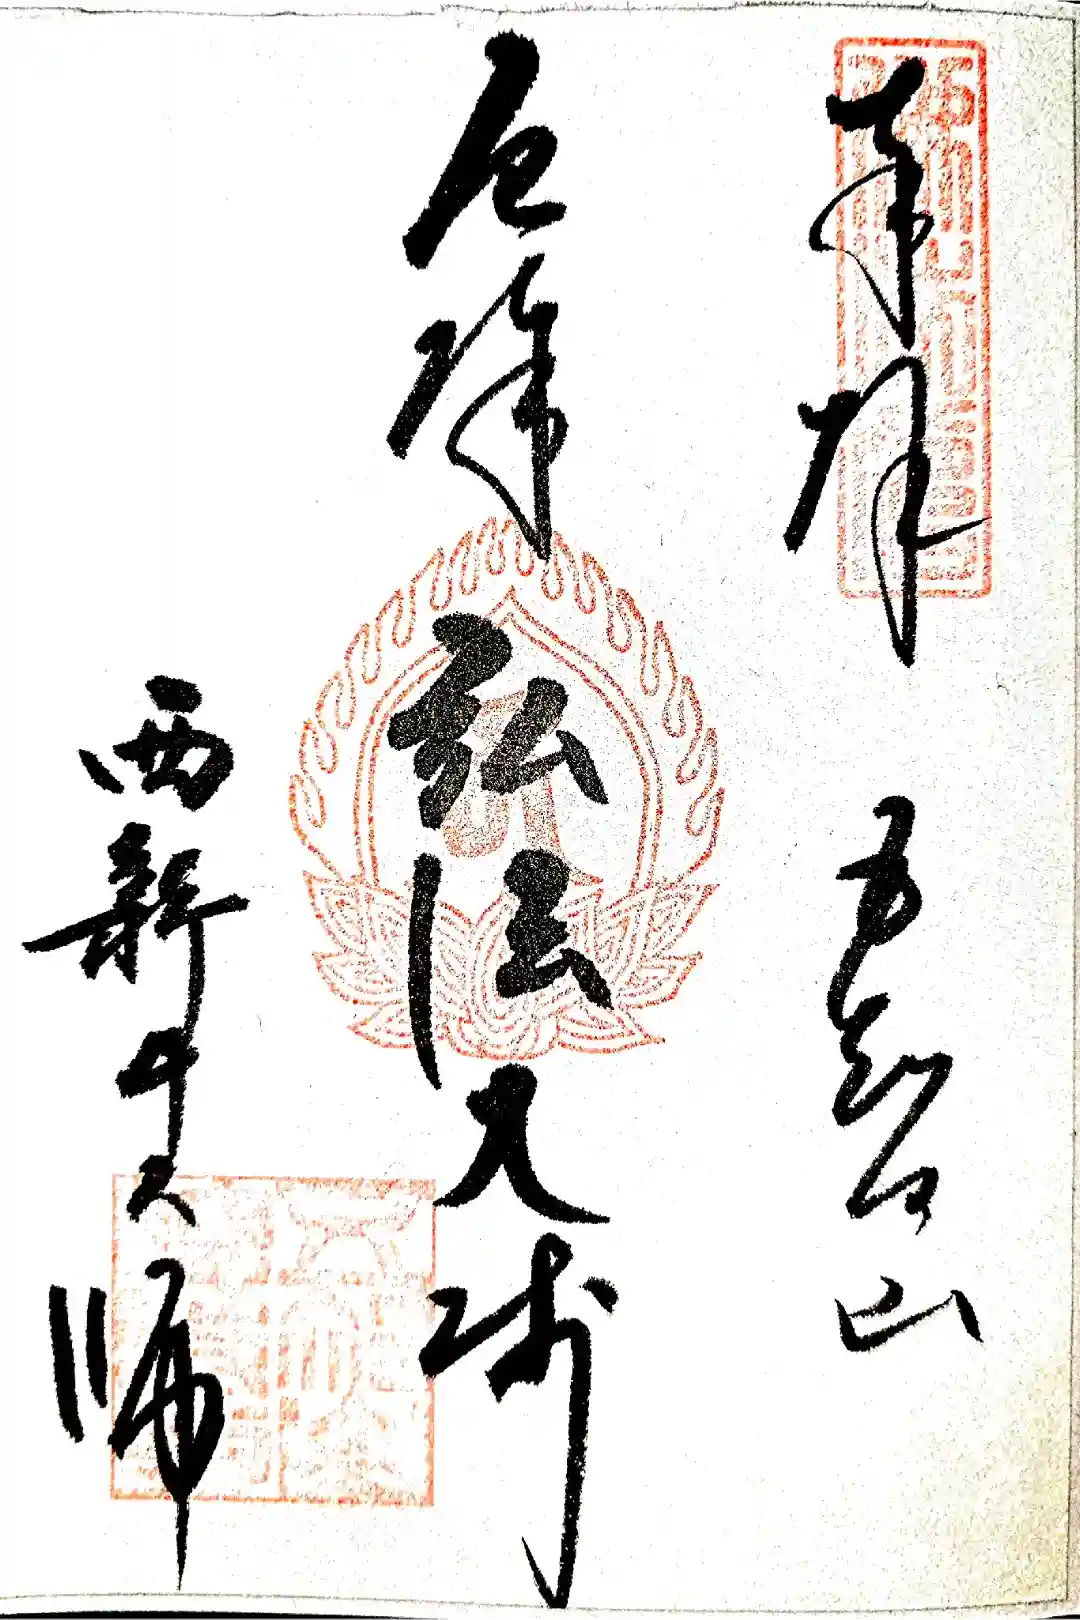 奉拝　五智山
厄除　弘法大師
西新井大師